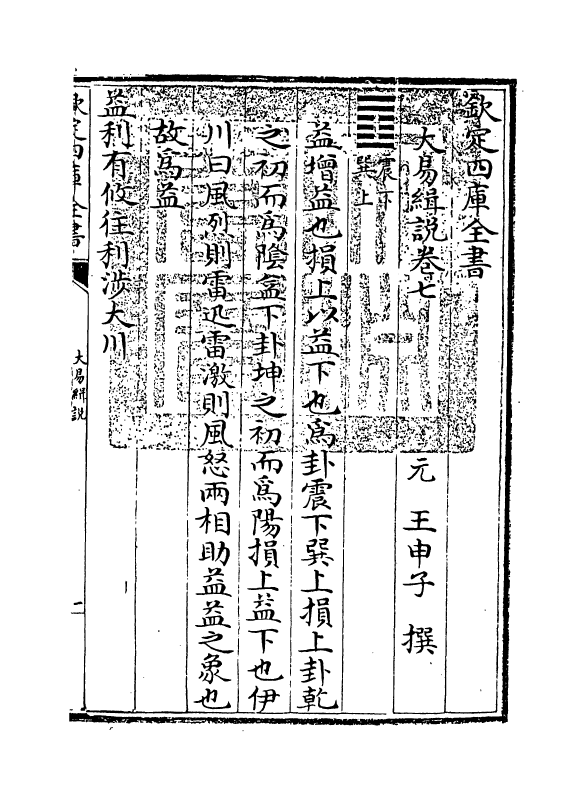 欽定四庫全書
大易緝說卷七
元 王申子 撰
䷩
震下
巽上
益增益也損上以益下也為卦震下巽上損上卦乾
之初而為陰益下卦坤之初而為陽損上益下也伊
川曰風烈則雷迅雷激則風怒兩相助益益之象也
故為益
益利有攸往利涉大川
欽定四庫全書
大易緝説
一